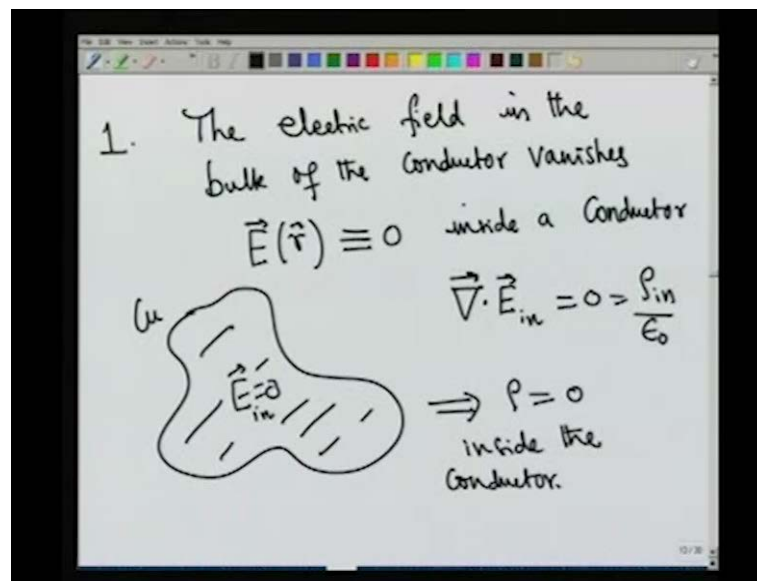 File Edit View Insert Actions Tools Help
1. The electric field in the
bulk of the conductor vanishes
E⃗(r̂) ≡ 0 inside a Conductor
∇⃗·E⃗in = 0 = ρin/ε0
Cu
E⃗in=0
⟹ ρ = 0
inside the
Conductor.